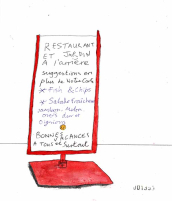 RESTAURANT
ET JARDIN
A l'arrière
suggestions en
plus de Notre Carte
* Fish & Chips
* Salade fraîcheur
jambon - melon
oeufs durs
BONNES VACANCES
A TOUS et Surtout